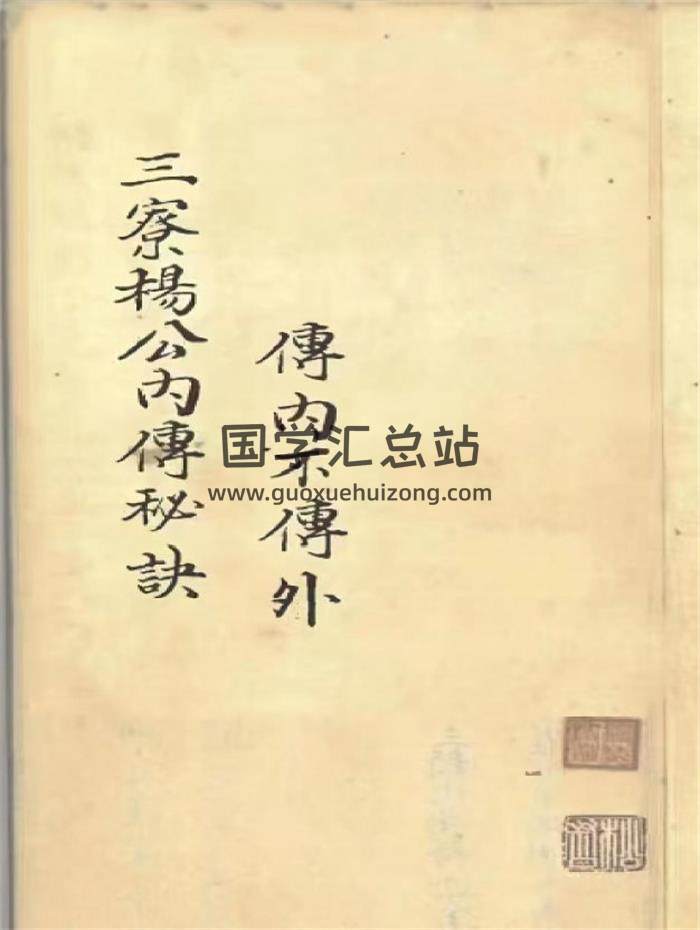 傳内不傳外
三寮楊公内傳秘訣
国学汇总站
www.guoxuehuizong.com